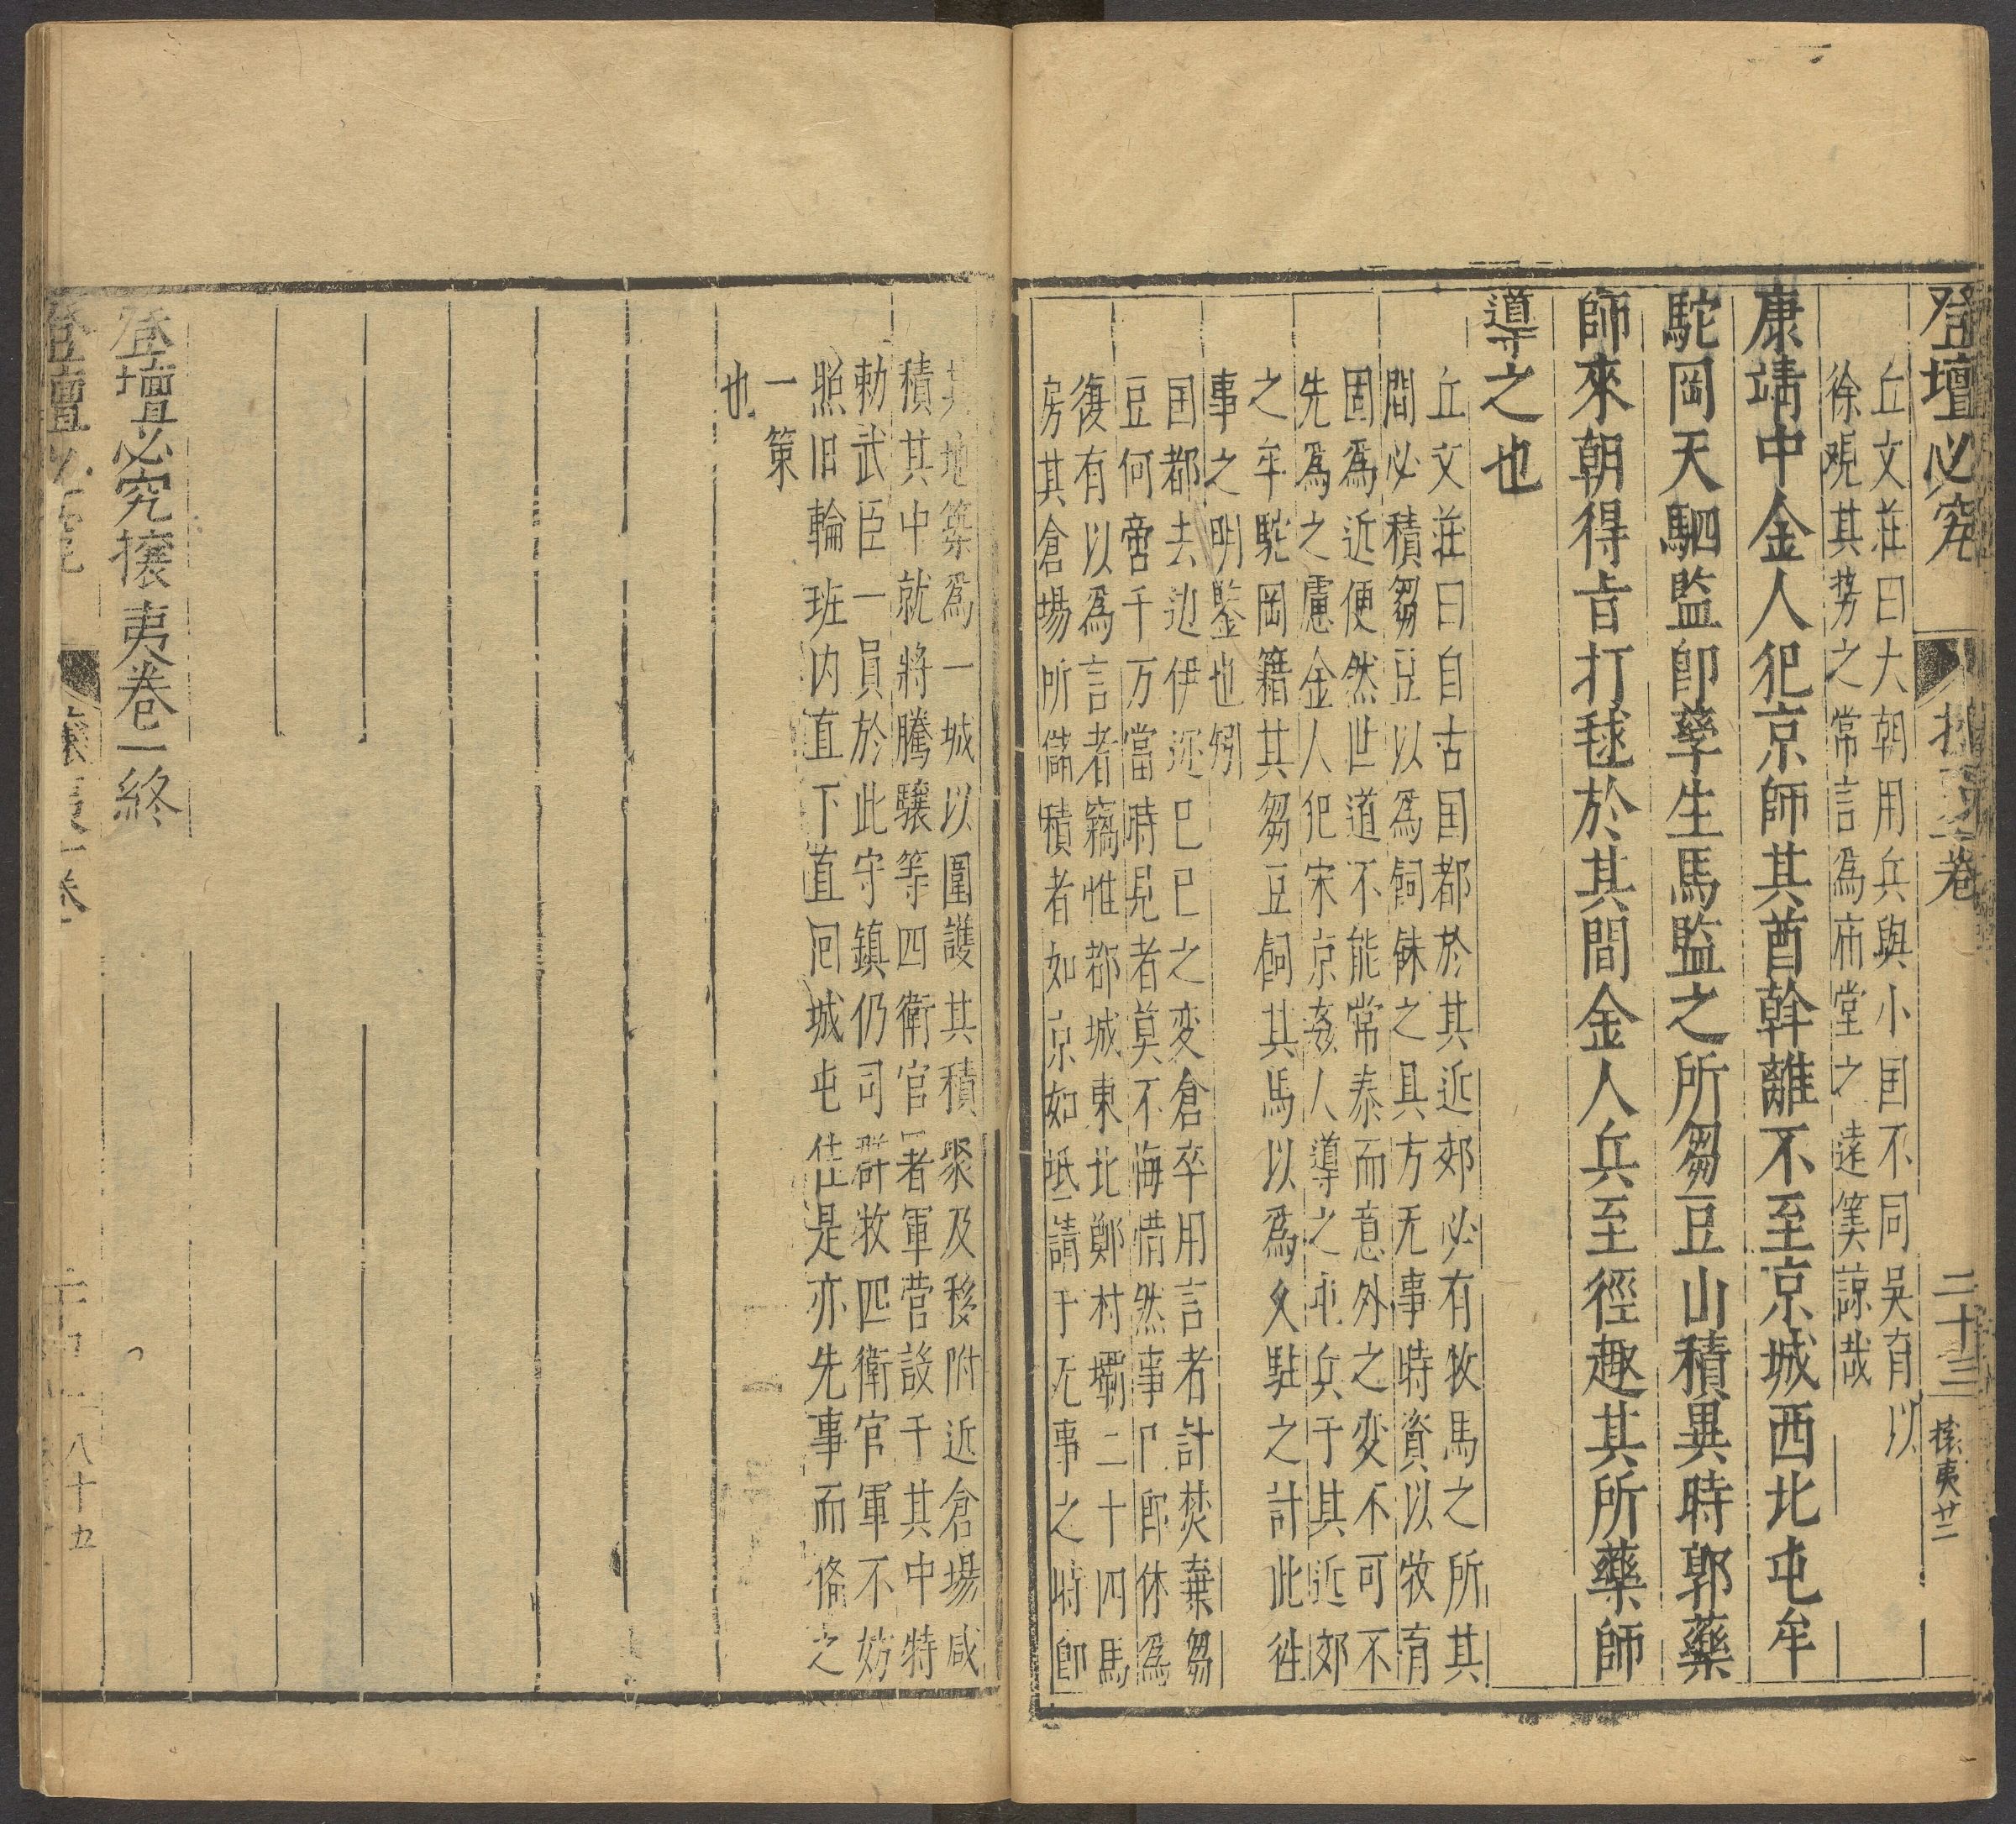 登壇必究 卷 二十三 攘夷廿二
丘文莊曰大朝用兵與小囯不同吳育以
徐覌其势之常言為庙堂之遠筭諒哉
康靖中金人犯京師其酋幹離不至京城西北屯牟
駝岡天駟監卽孳生馬監之所芻豆山積異時郭藥
師來朝得旨打毬於其間金人兵至徑趣其所藥師
導之也
丘文莊曰自古囯都於其近郊必有牧馬之所其
間必積芻豆以為飼秣之具方无事時資以牧育
固為近便然世道不能常泰而意外之变不可不
先為之慮金人犯宋京姦人導之屯兵于其近郊
之牟駝岡籍其芻豆飼其馬以為久駐之計此徃
事之明鑒也矧
囯都去边伊迩巳巳之变倉卒用言者計焚棄芻
豆何啻千万當時見者莫不海惜然事卩卽休為
復有以為言者竊惟都城東北鄭村壩二十四馬
房其倉場所儲積者如京如坻請于无事之时卽
其地築為一城以圍護其積聚及移附近倉場咸
積其中就將騰驤等四衛官者軍营設于其中特
勅武臣一員於此守鎮仍司群牧四衛官軍不妨
照旧輪班内直下直囘城屯住是亦先事而俻之
一策
也
登壇必究攘夷卷一終
登壇 八十五